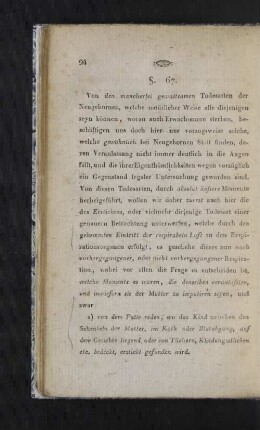 94
§. 67.
Von den mancherlei gewaltsamen Todesarten der
Neugebornen, welche natürlicher Weise alle diejenigen
seyn können, woran auch Erwachsene sterben, be-
schäftigen uns doch hier nur vorzugsweise solche,
welche gewöhnlich bei Neugebornen Statt finden, de-
ren Veranlassung nicht immer deutlich in die Augen
fällt, und die ihrer Eigenthümlichkeiten wegen vorzüglich
ein Gegenstand legaler Untersuchung geworden sind.
Von diesen Todesarten, durch absolut äußere Momente
herbeigeführt, wollen wir daher zuerst auch hier die
des Erstickens, oder vielmehr diejenige Todesart einer
genaueren Betrachtung unterwerfen, welche durch den
gehemmten Eintritt der respirabeln Luft in den Respi-
rationsorganen erfolgt, es geschehe dieses nun nach
vorhergegangener, oder nicht vorhergegangener Respira-
tion, wobei vor allen die Frage zu entscheiden ist,
welche Momente es waren, die denselben verursachten,
und inwiefern sie der Mutter zu imputiren seyen, und
zwar
a) von dem Falle reden, wo das Kind zwischen den
Schenkeln der Mutter, im Koth oder Blutabgang, auf
dem Gesichte liegend, oder von Tüchern, Kleidungsstücken
etc. bedeckt, erstickt gefunden wird.